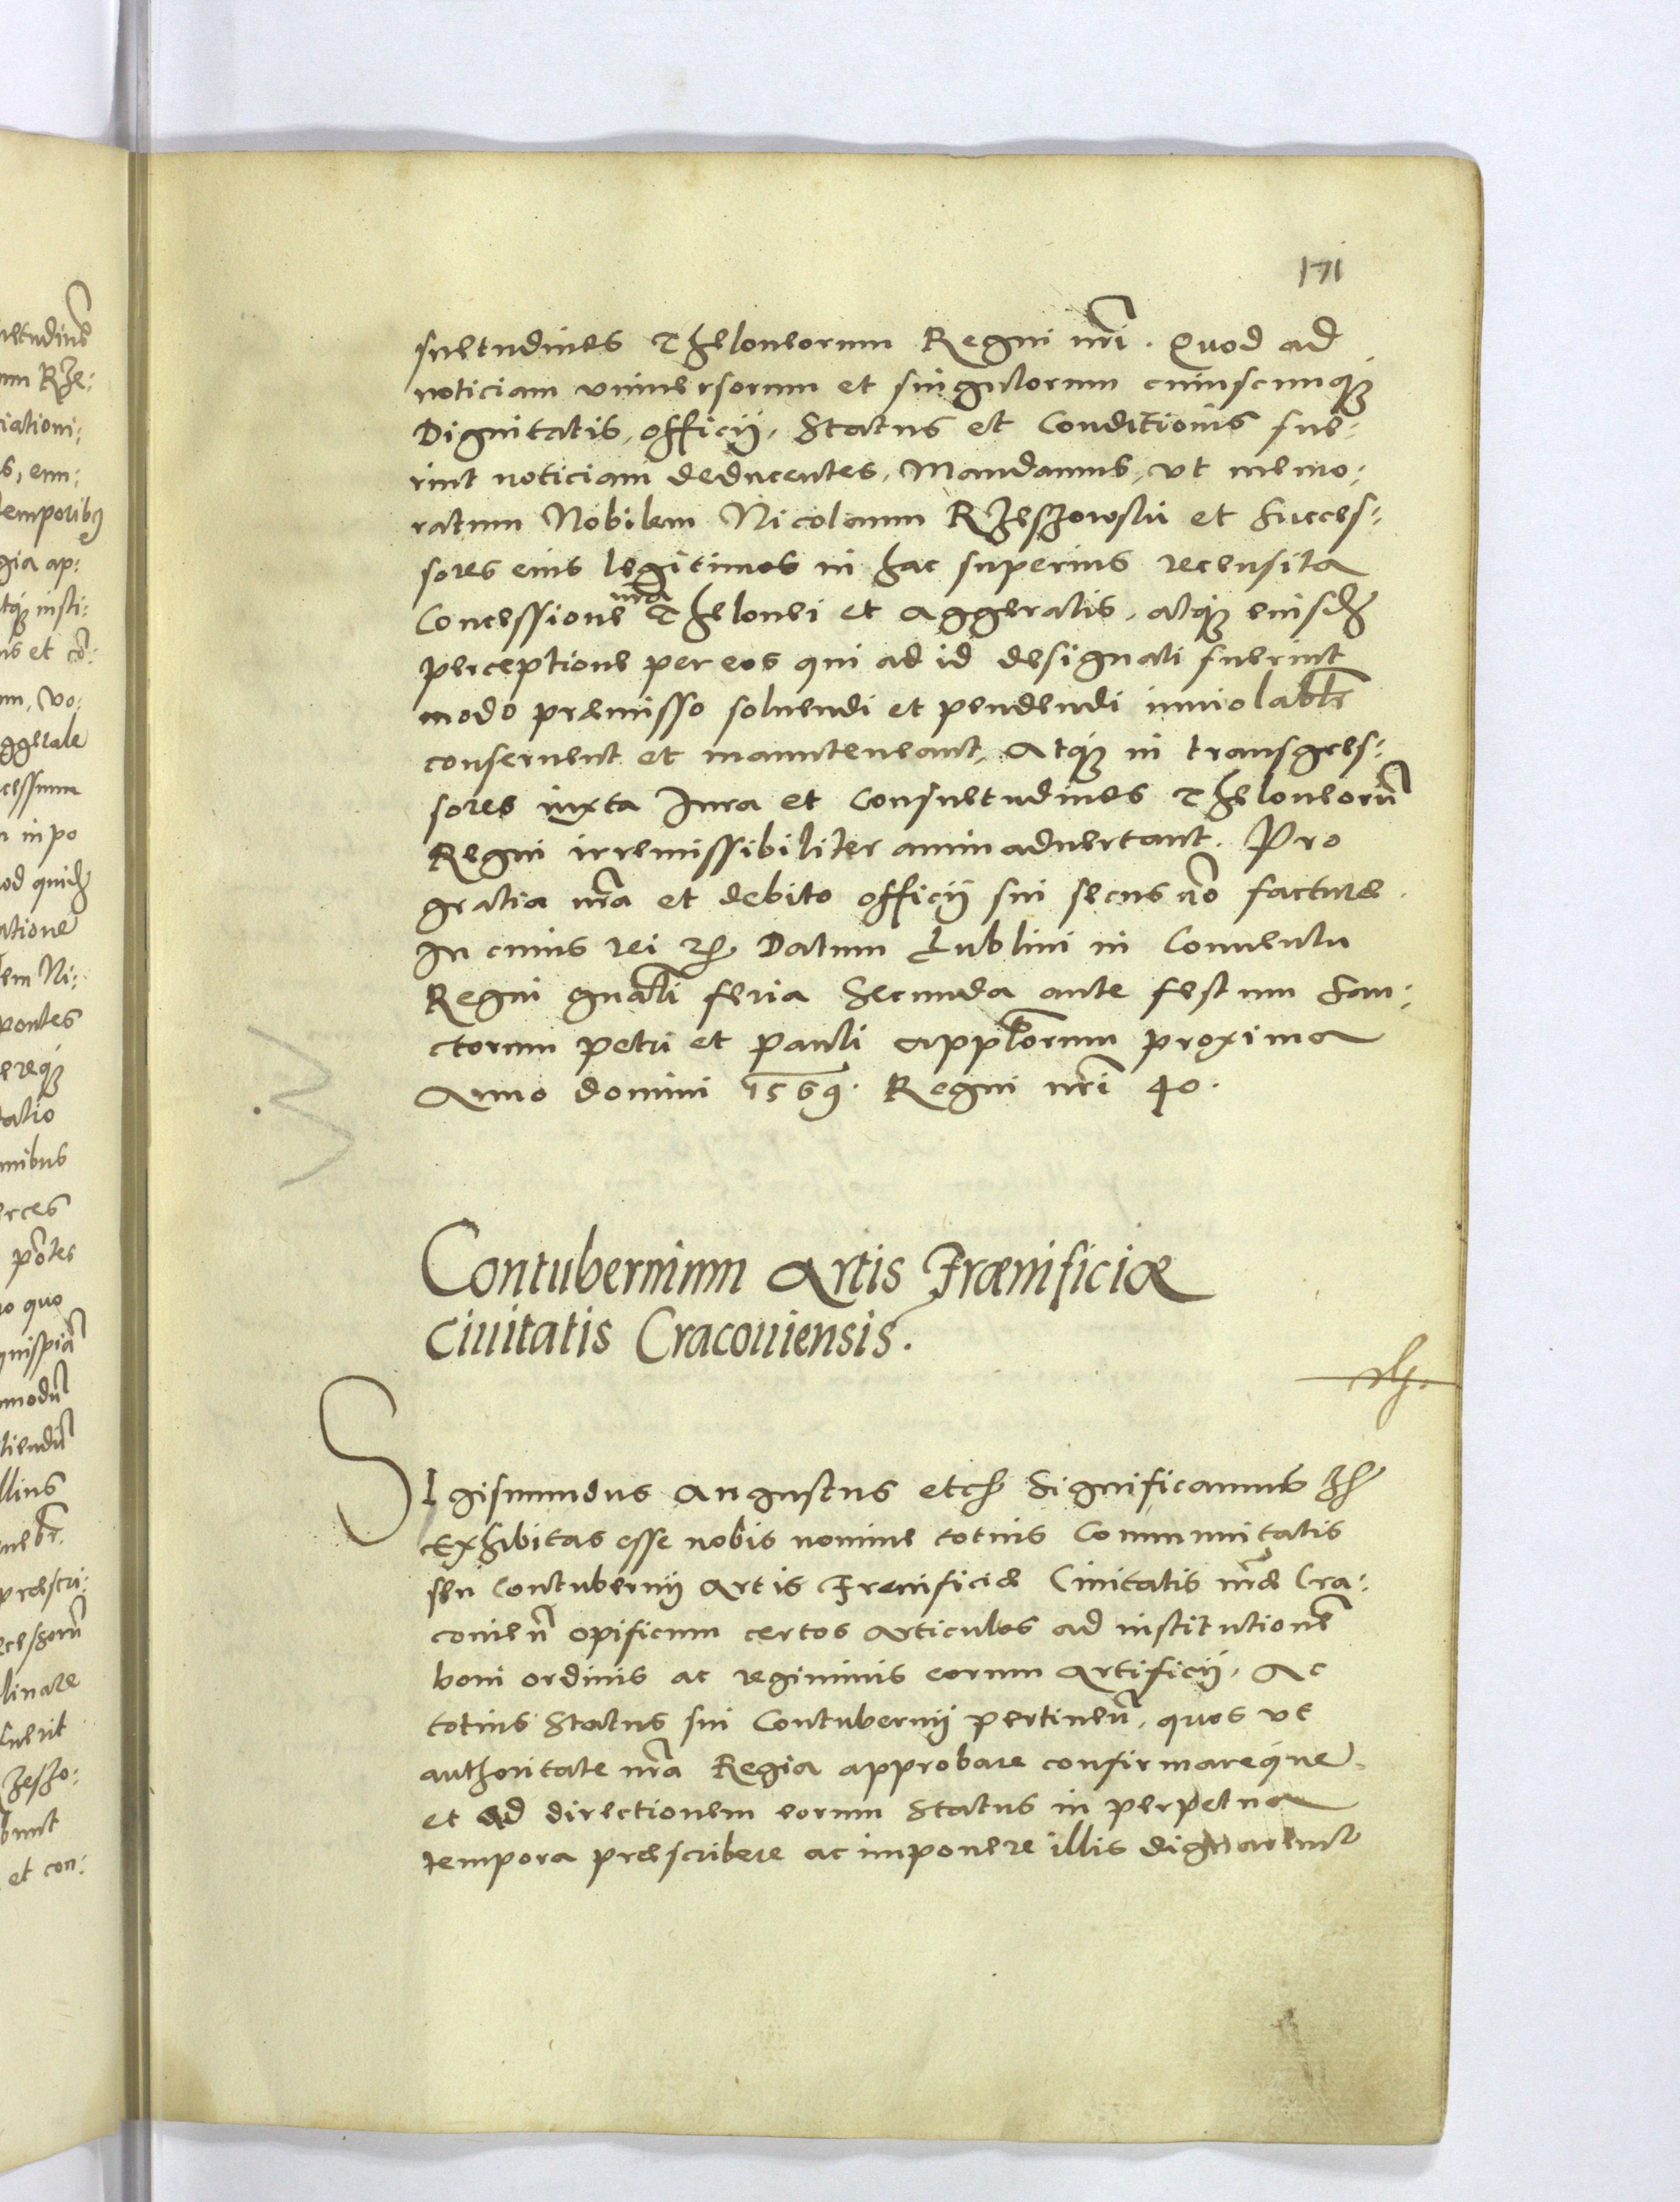 171
suetudines Theloneorum Regni nr̃i. Quod ad
noticiam vniuersorum et singulorum cuiuscunqꝫ
Dignitatis, officij, Status et Conditionis fue:
rint noticiam deducentes, Mandamus, vt memo:
ratum Nobilem Nicolaum Rzeszowski et Succes:
sores eius legitimos in hac superius recensita
Concessione nr̃a Thelonei et Aggeralis, atqꝫ eiusdꝫ
perceptione per eos qui ad id designati fuerint
modo præmisso soluendi et pendendi inuiolabl̃r
conseruent et manuteneant, Atqꝫ in transgres:
sores iuxta Jura et Consuetudines Theloneorũ
Regni irremissibiliter animaduertant. Pro
gratia nr̃a et debito officij sui secus nõ facture.
In cuius rei ꝛc̃ Datum Lublini in Conuentu
Regni gnãli feria Secunda ante festum San:
ctorum Petri et Pauli Appl̃orum proxima
Anno domini 1569. Regni nr̃i 40.
Contubernium Artis Frænificiæ
Ciuitatis Cracouiensis.
Sigismundus Augustus etc̃ Significamus ꝛc̃
Exhibitas esse nobis nomine totius Communitatis
seu Contubernij Artis Frenificiæ Ciuitatis nr̃æ Cra:
couieñ opificum certos Articulos ad institutionẽ
boni ordinis ac regiminis eorum Artificij, Ac
totius Status sui Contubernij pertineñ, quos vt
authoritate nr̃a Regia approbare confirmareque
et ad directionem eorum Status in perpetua
tempora præscribere ac imponere illis dignaremur